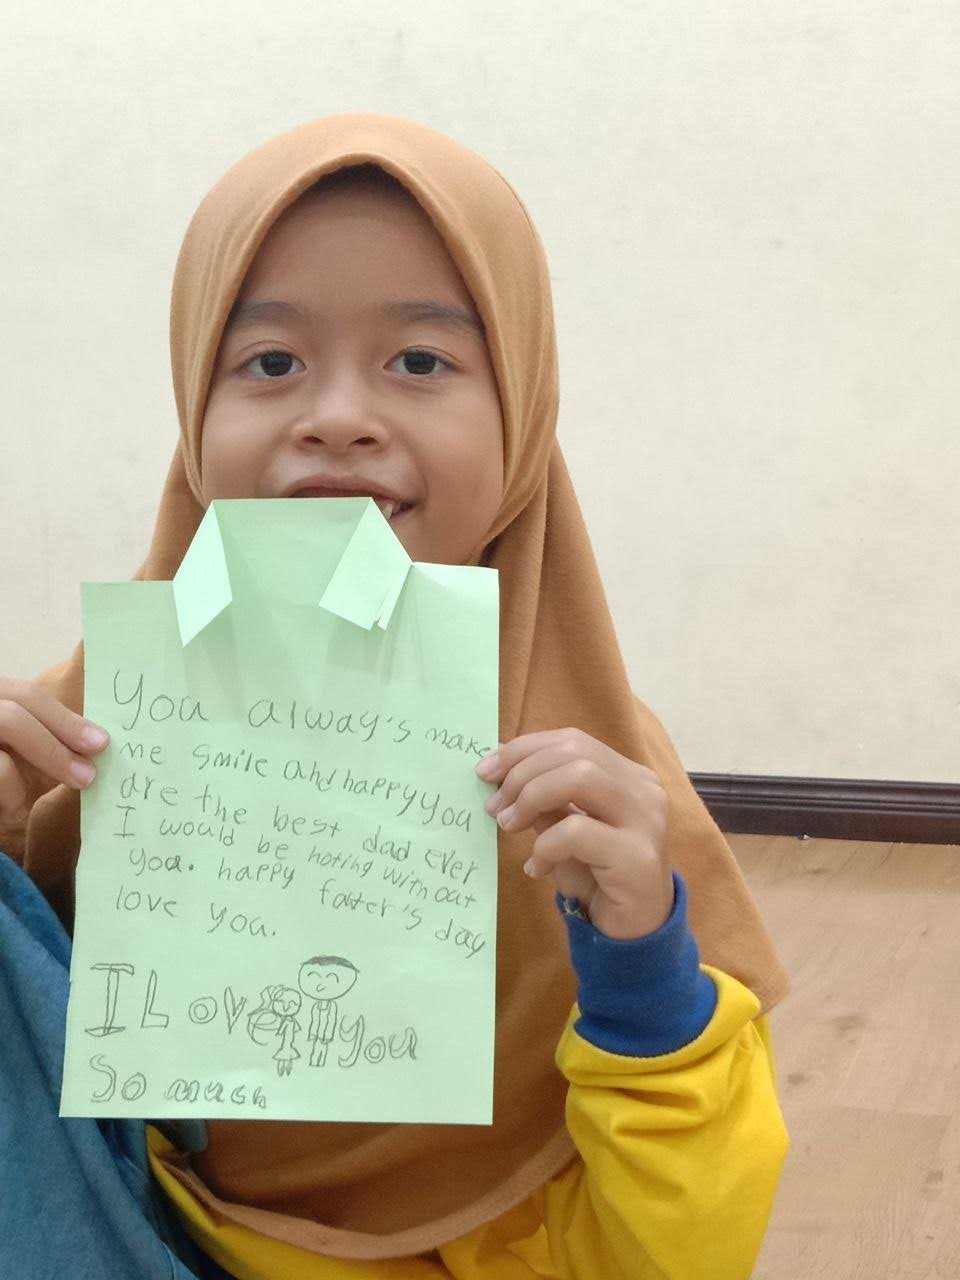 You alway's make
me smile and happy you
are the best dad ever
I would be noting without
you. happy fater's day
love you.
I Love you
So mush